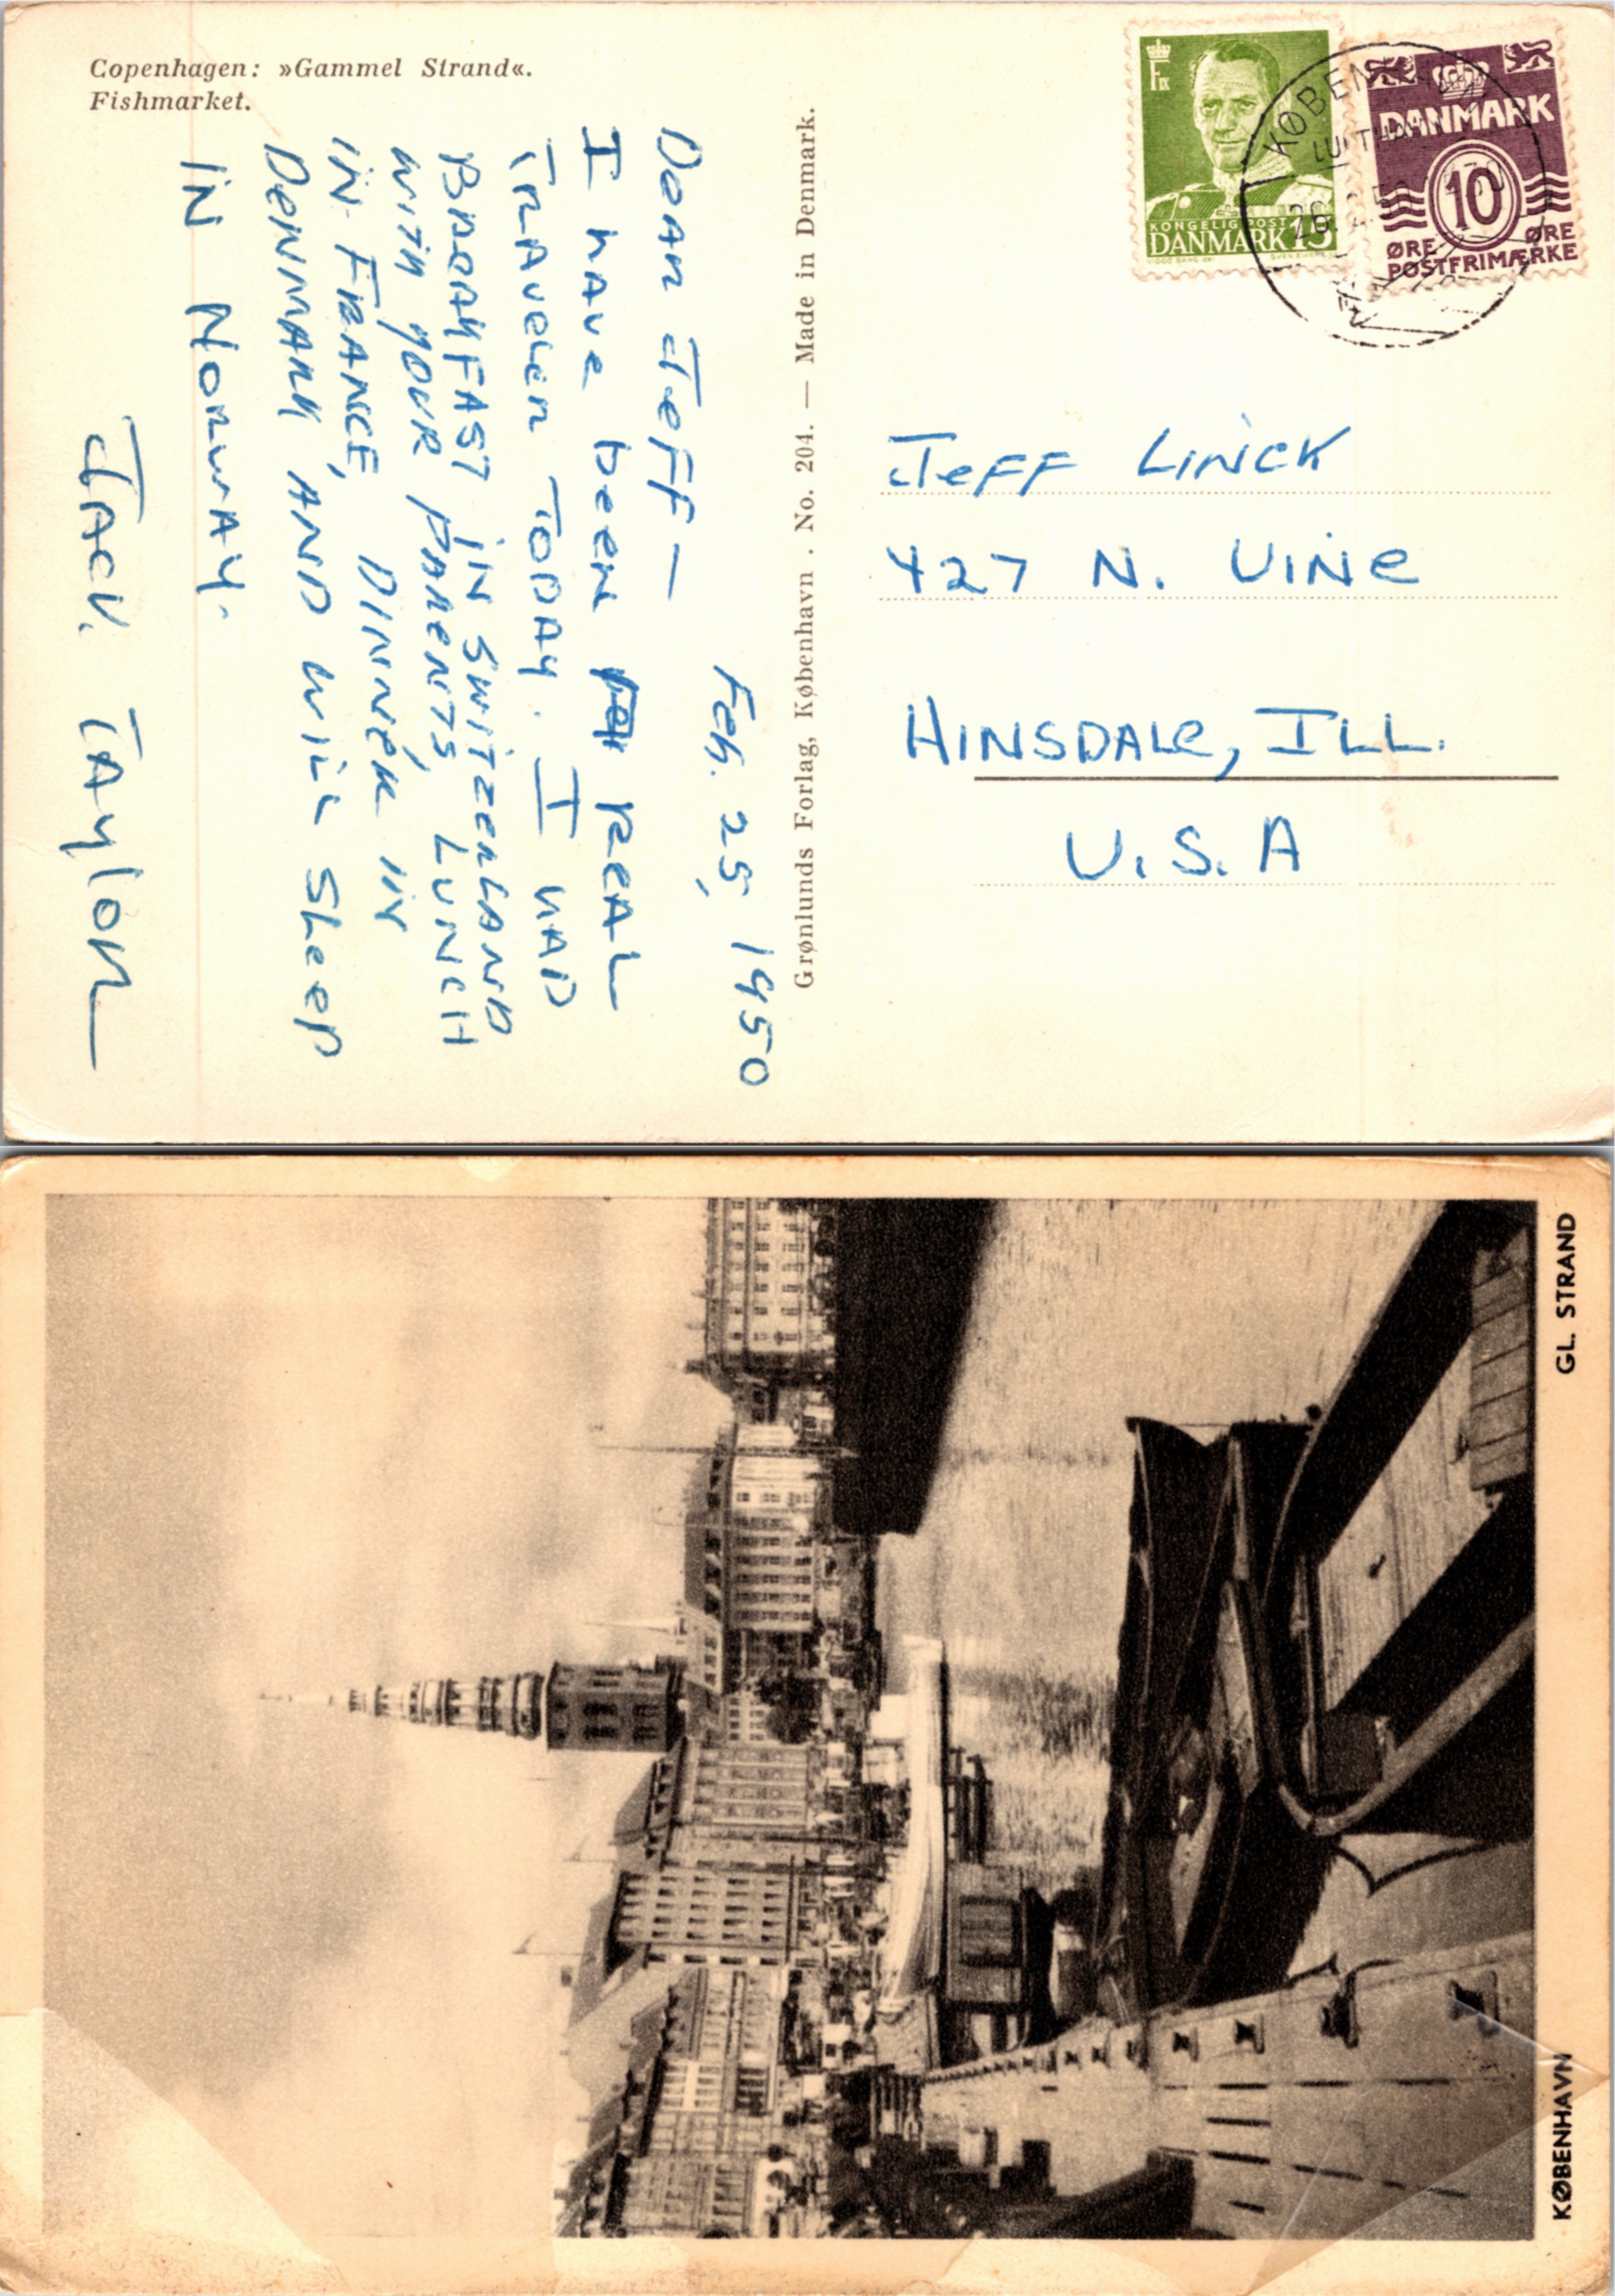 Copenhagen: »Gammel Strand«.
Fishmarket.
Feb. 25, 1950
Dear Jeff —
I have been a real
traveler today. I had
breakfast in Switzerland
with your parents, lunch
in France, dinner in
Denmark and will sleep
in Norway.
Jack Taylor
Grønlunds Forlag, København . No. 204. — Made in Denmark.
KONGELIG POST
DANMARK 15
DANMARK
10
ØRE ØRE
POSTFRIMÆRKE
KØBENHAVN
LUFTHAVN
Jeff Linck
427 N. Vine
Hinsdale, Ill.
U.S.A
KØBENHAVN
GL. STRAND